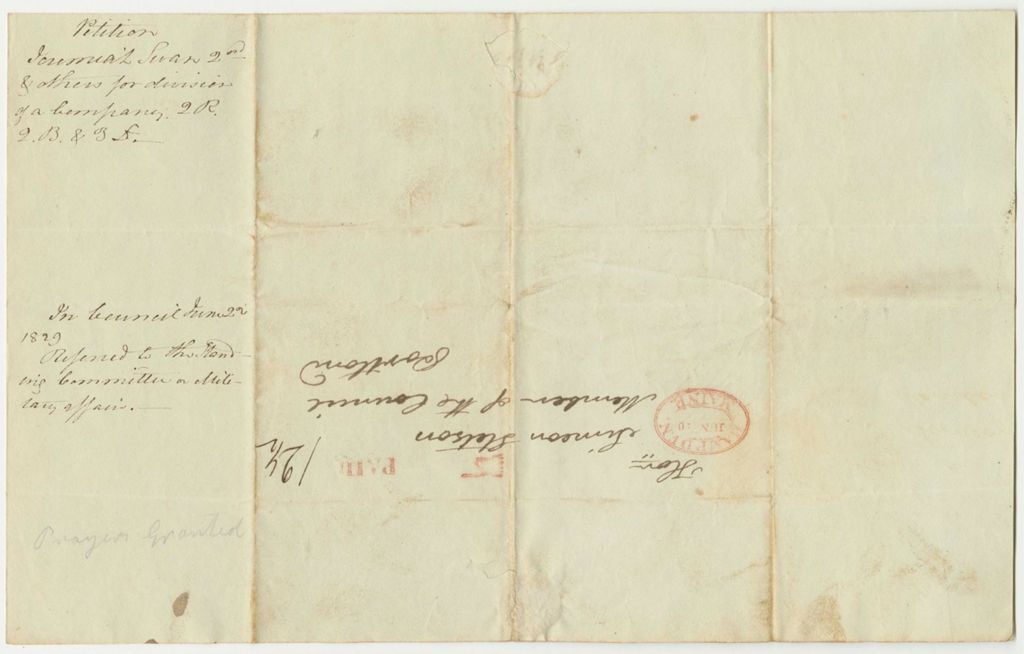 Petition
Jeremiah Swan 2nd
& others for division
of a Company. 2 R.
2. B. & 3 D.
In Council June 22d
1829
Referred to the Stand-
ing Committee on Mili-
tary affairs.
Prayer Granted
Hon:
Simeon Stetson
Member of the Council
Portland
12½
PAID
JUN 20
MAINE